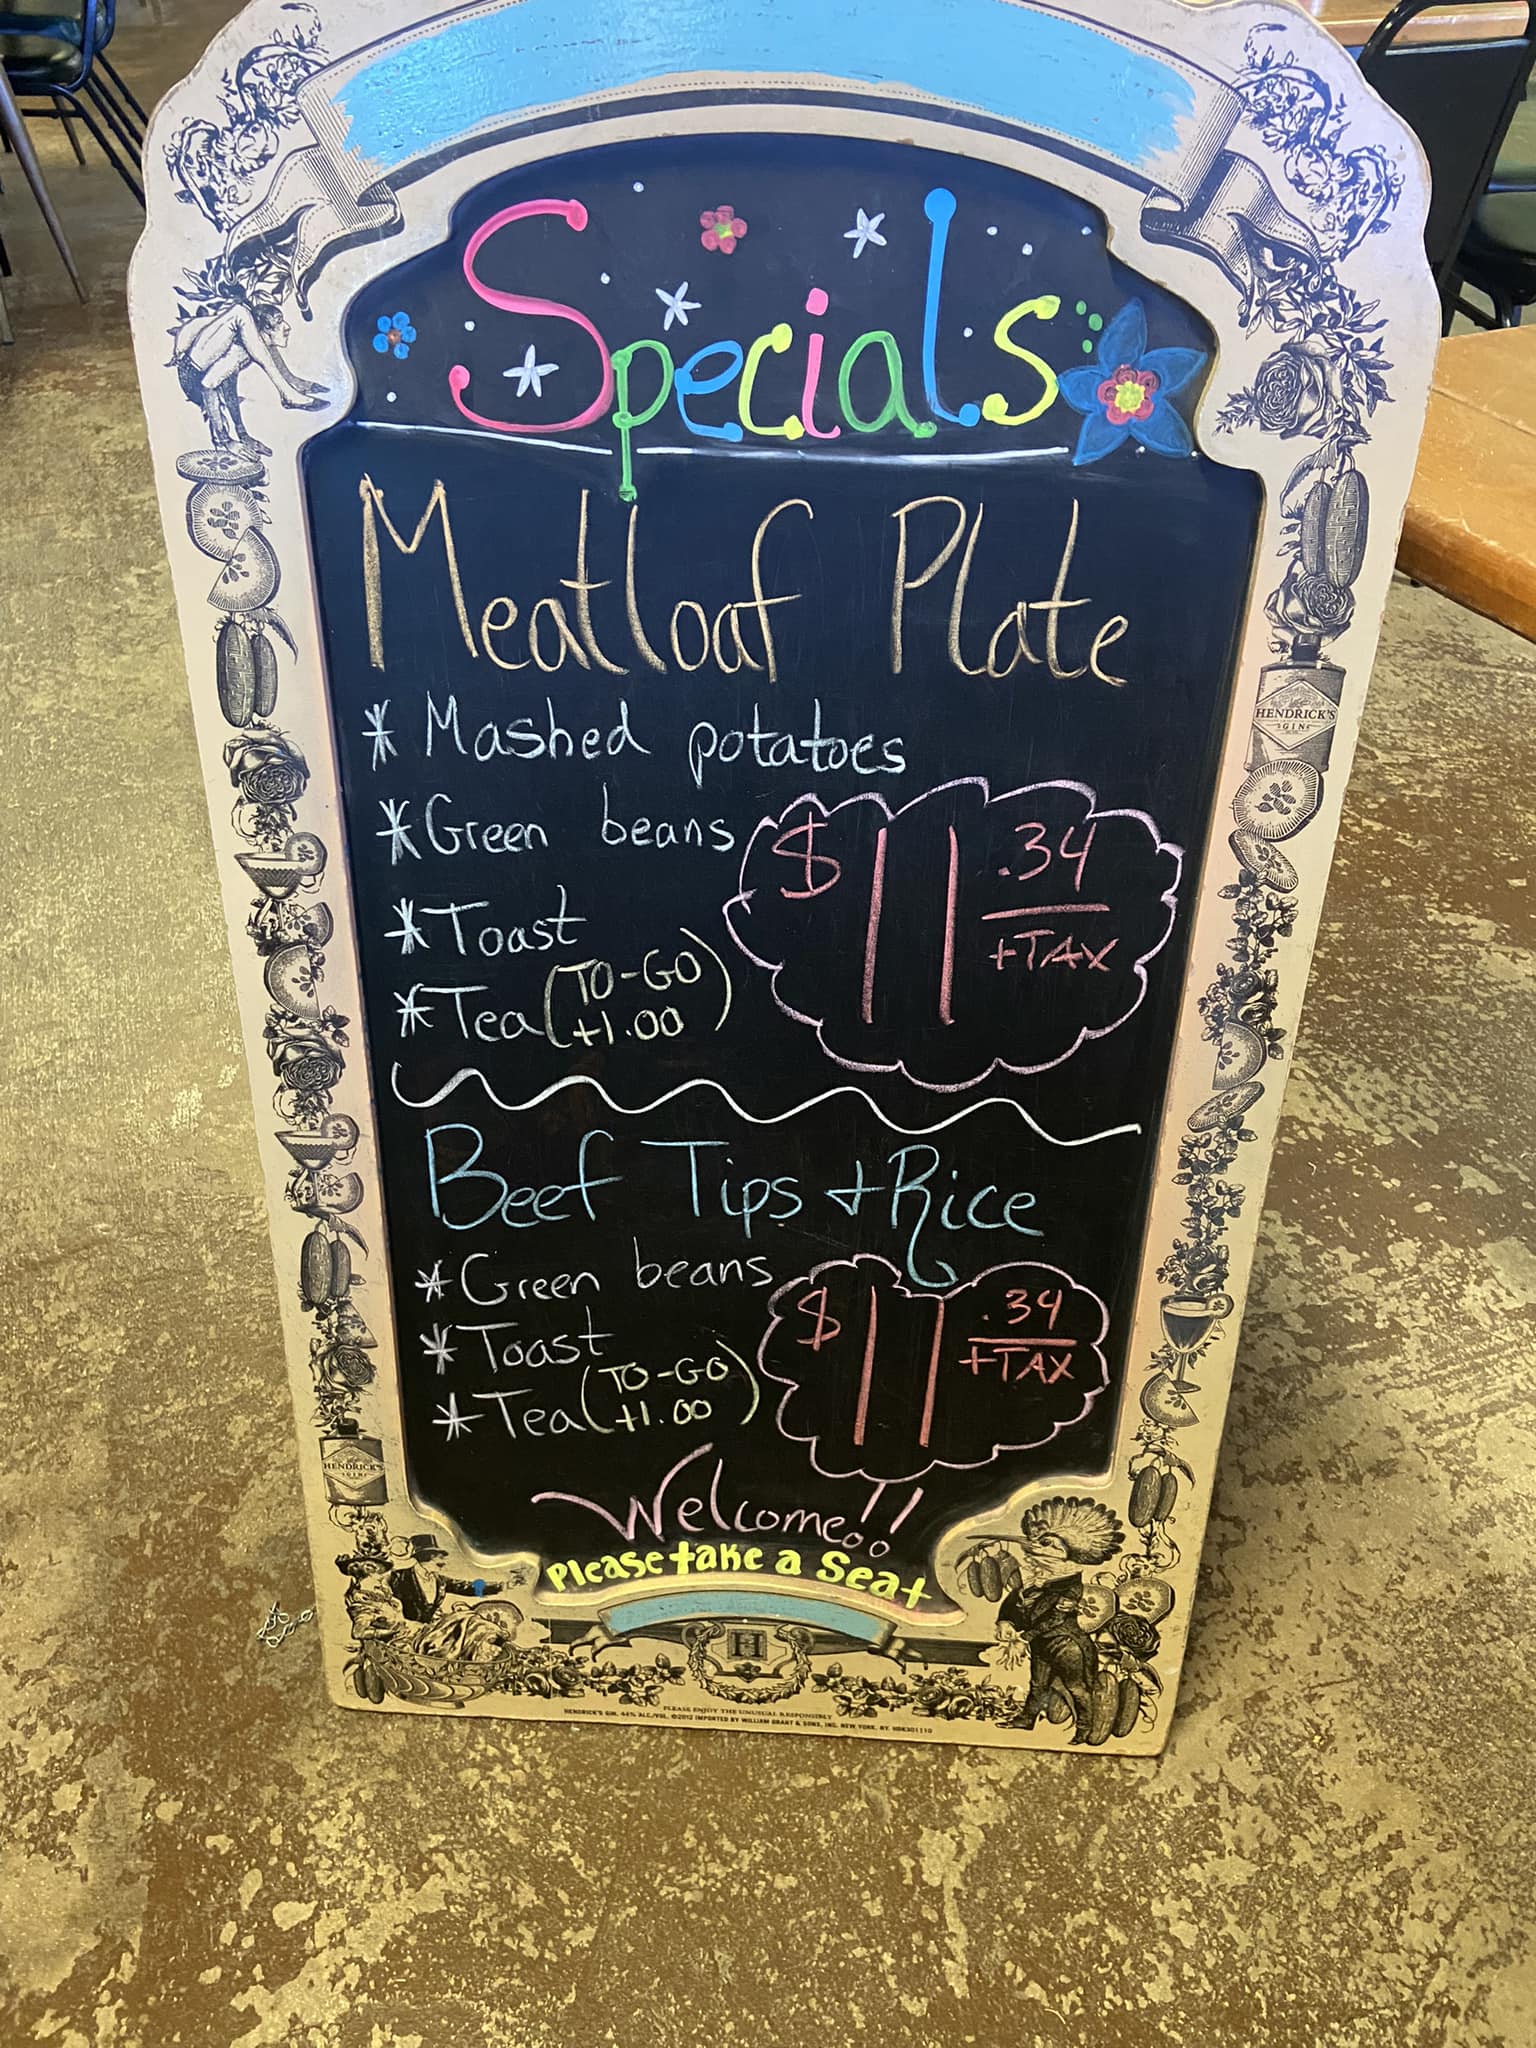 Specials
Meatloaf Plate
* Mashed potatoes
* Green beans
* Toast
* Tea (TO-GO +1.00)
$11.34
+TAX
Beef Tips + Rice
* Green beans
* Toast
* Tea (TO-GO +1.00)
$11.34
+TAX
Welcome!!
Please take a Seat
HENDRICK'S
GIN
HENDRICK'S
GIN
H
PLEASE ENJOY THE UNUSUAL RESPONSIBLY
HENDRICK'S GIN, 44% ALC./VOL. ©2012 IMPORTED BY WILLIAM GRANT & SONS, INC. NEW YORK, NY. HDK301110